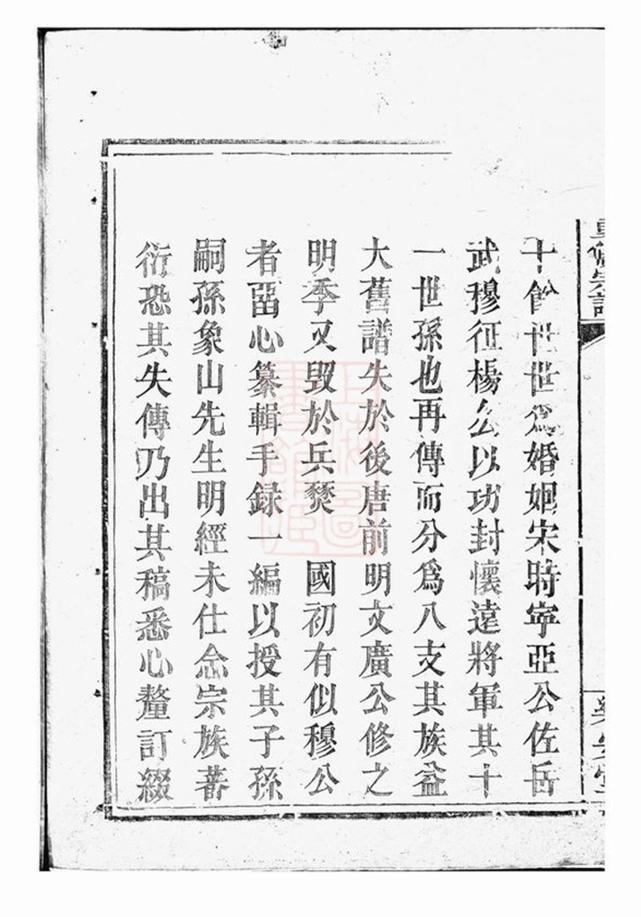 十餘世世爲婚姻宋時寜亞公佐岳
武穆征楊公以功封懷遠將軍其十
一世孫也再傳而分爲八支其族益
大舊譜失於後唐前明文廣公修之
明季又毀於兵燹　國初有似穆公
者畱心纂輯手録一編以授其子孫
嗣孫象山先生明經未仕念宗族蕃
衍恐其失傳乃出其稿悉心釐訂綴